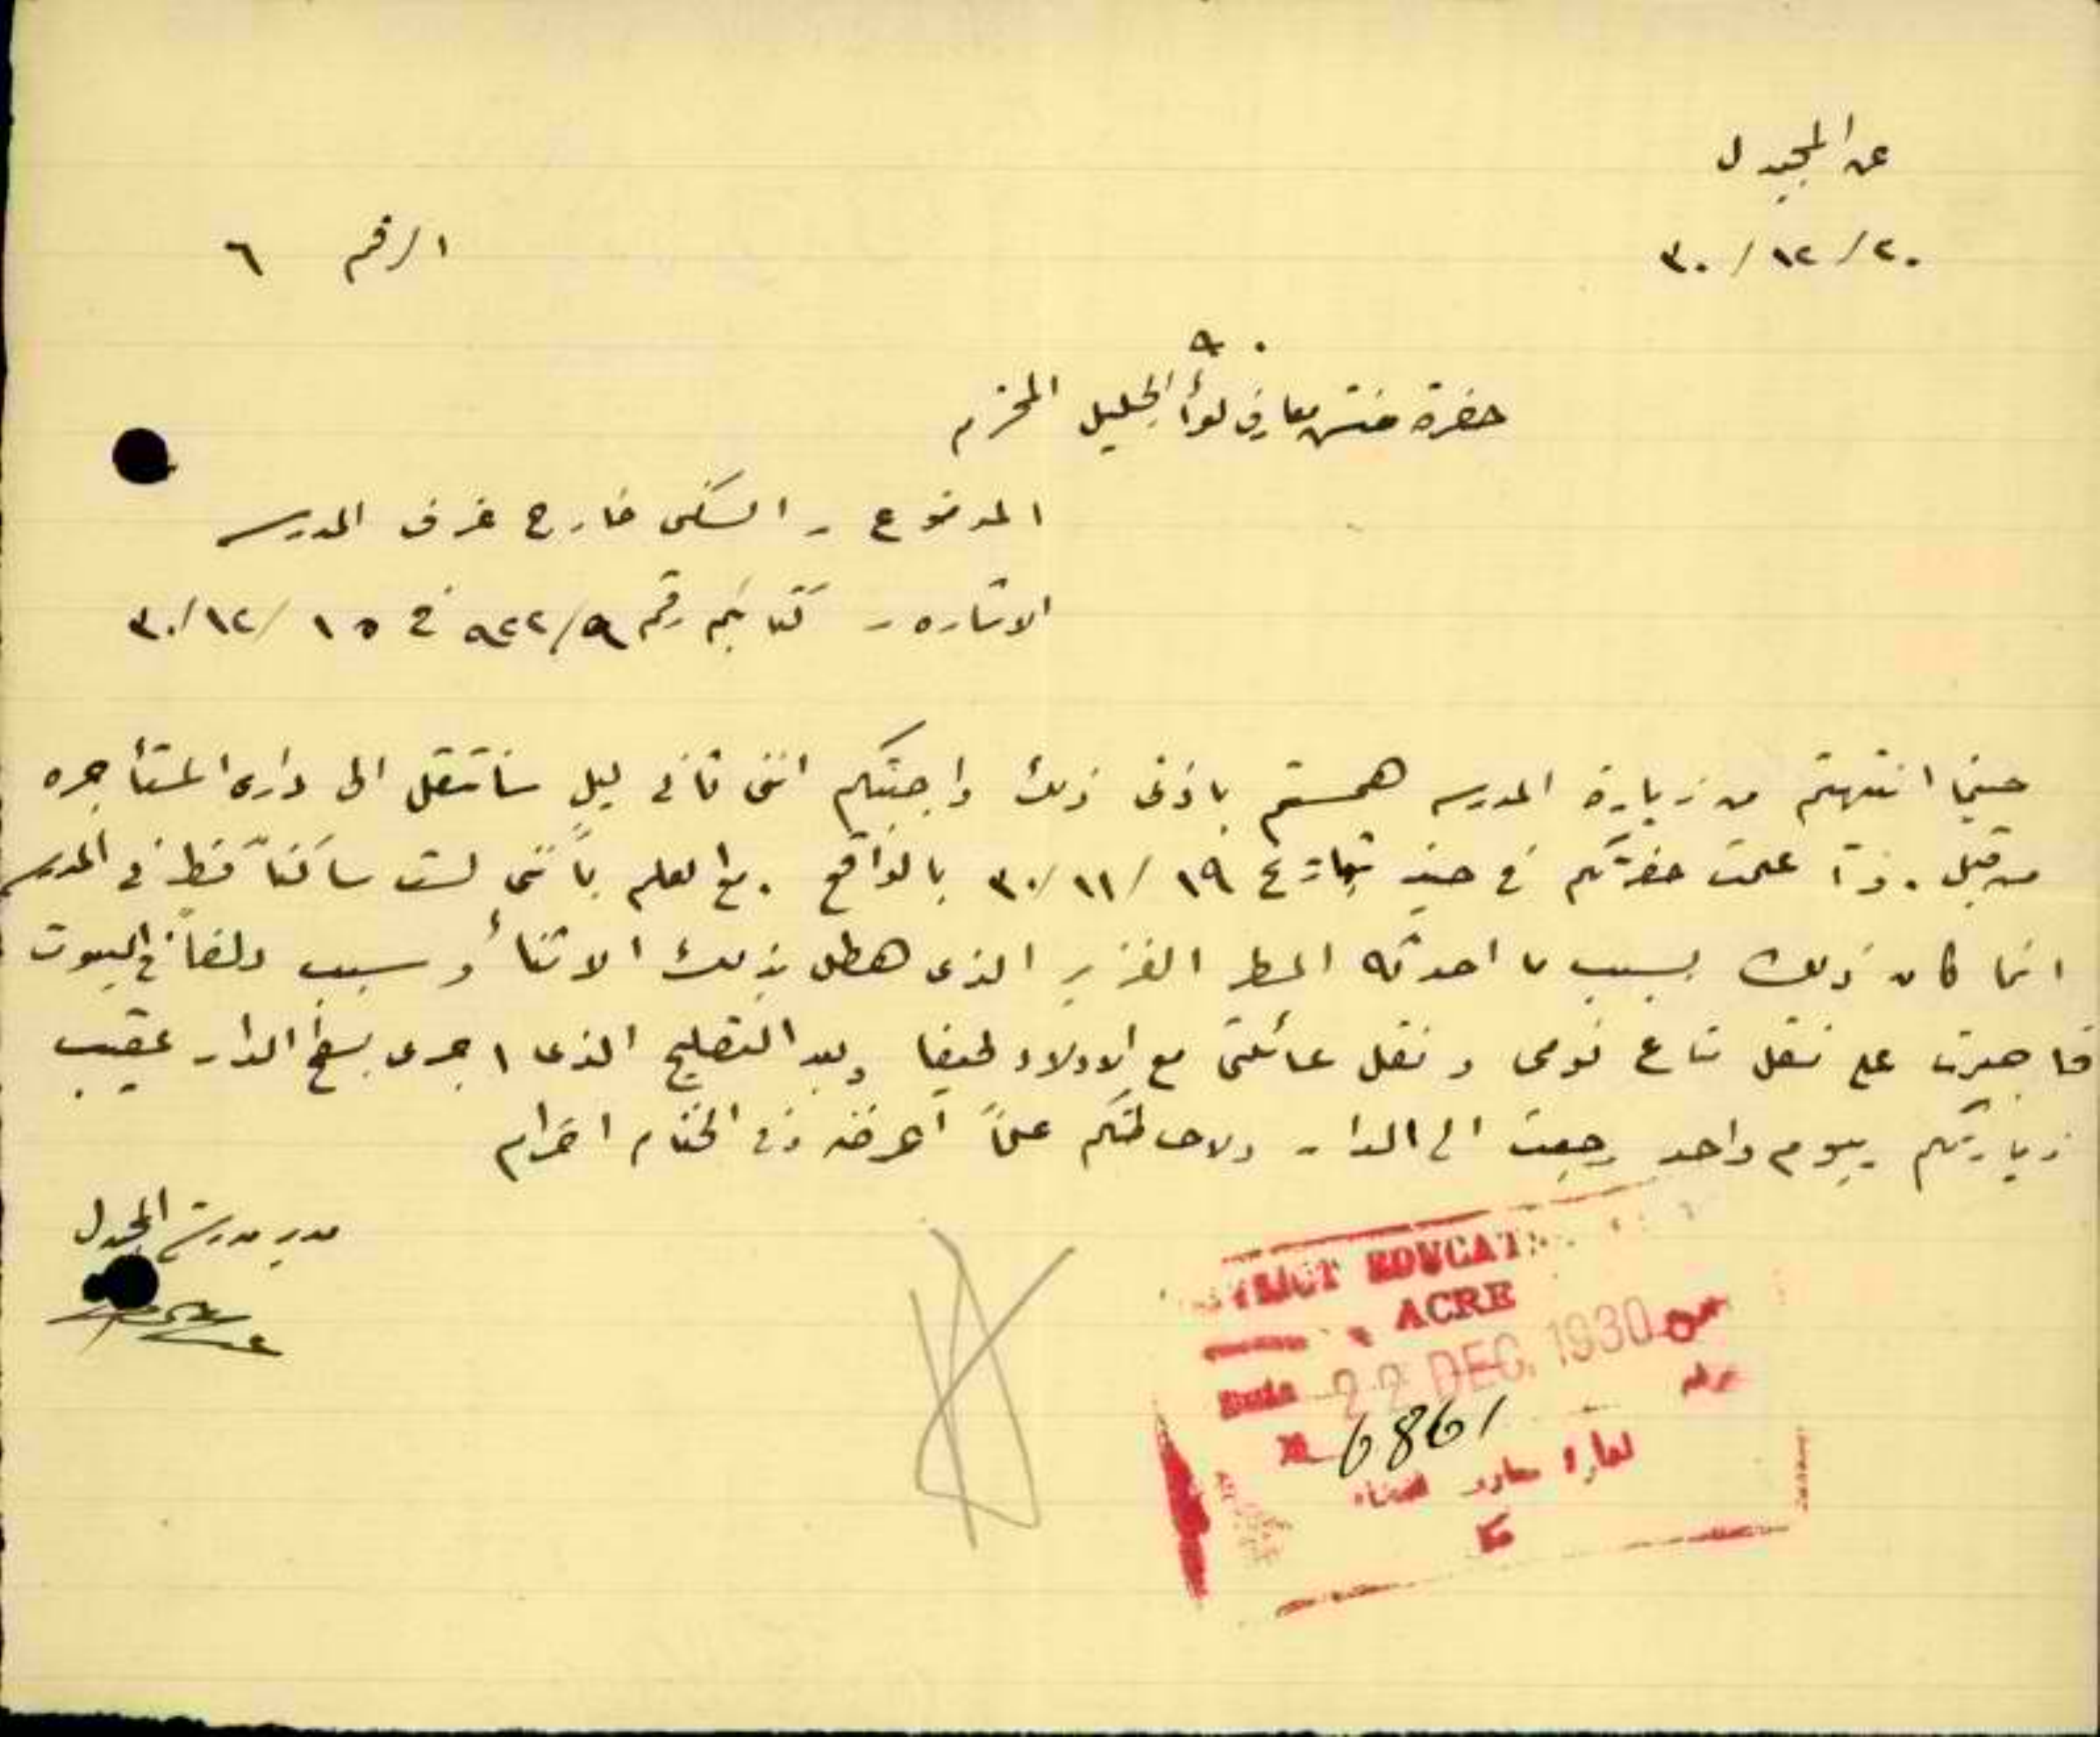 عن المجيدل
٢٠/١٢/٣٠
الرقم ٦
٩٠
حضرة مفتش معارف لوأ الجليل المحترم
الموضوع - السكنى خارج غرف المدرسه
الاشاره - كتابكم رقم ٩٤٢/٩ في ١٥/١٢/٣٠
حينما انتهيتم من زيارة المدرسه همستم باذني ذلك واجبتكم انني ثاني ليل سأنتقل الى داري المستأجره
من قبل. علمت حضرتكم في بتاريخ ١٩/١١/٣٠ بالواقع. مع العلم بأنني لست ساكناً قط في المدرسه
انما كان ذلك بسبب ما احدثه المطر الغزير الذي هطل بذلك الاثنأ وسبب دلفاً في البيوت
فاجبرت على نقل متاع نومي ونقل عائلتي مع الاولاد وبعد التصليح الذي اجرى بسطح الدار عقيب
زيارتكم بيوم واحد رجعت الى الدار ولاحاطتكم علماً اعرضه وفي الختام احترام
مدير مدرسة المجيدل
DISTRICT EDUCATION
ACRE
Date 22 DEC. 1930
No 6861
عكا